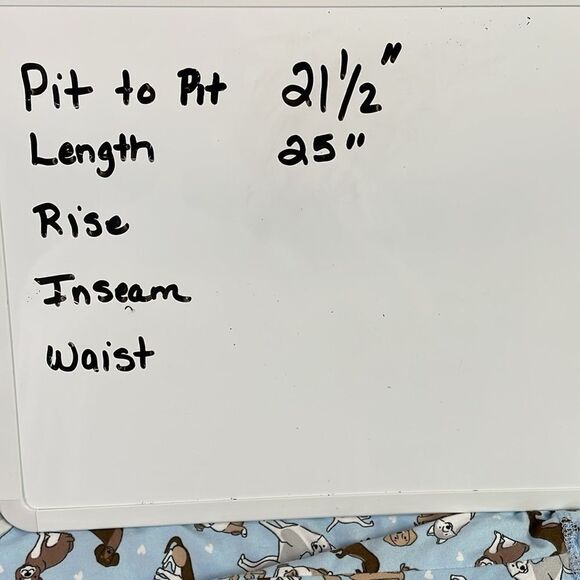 Pit to Pit 21 1/2"
Length 25"
Rise
Inseam
Waist